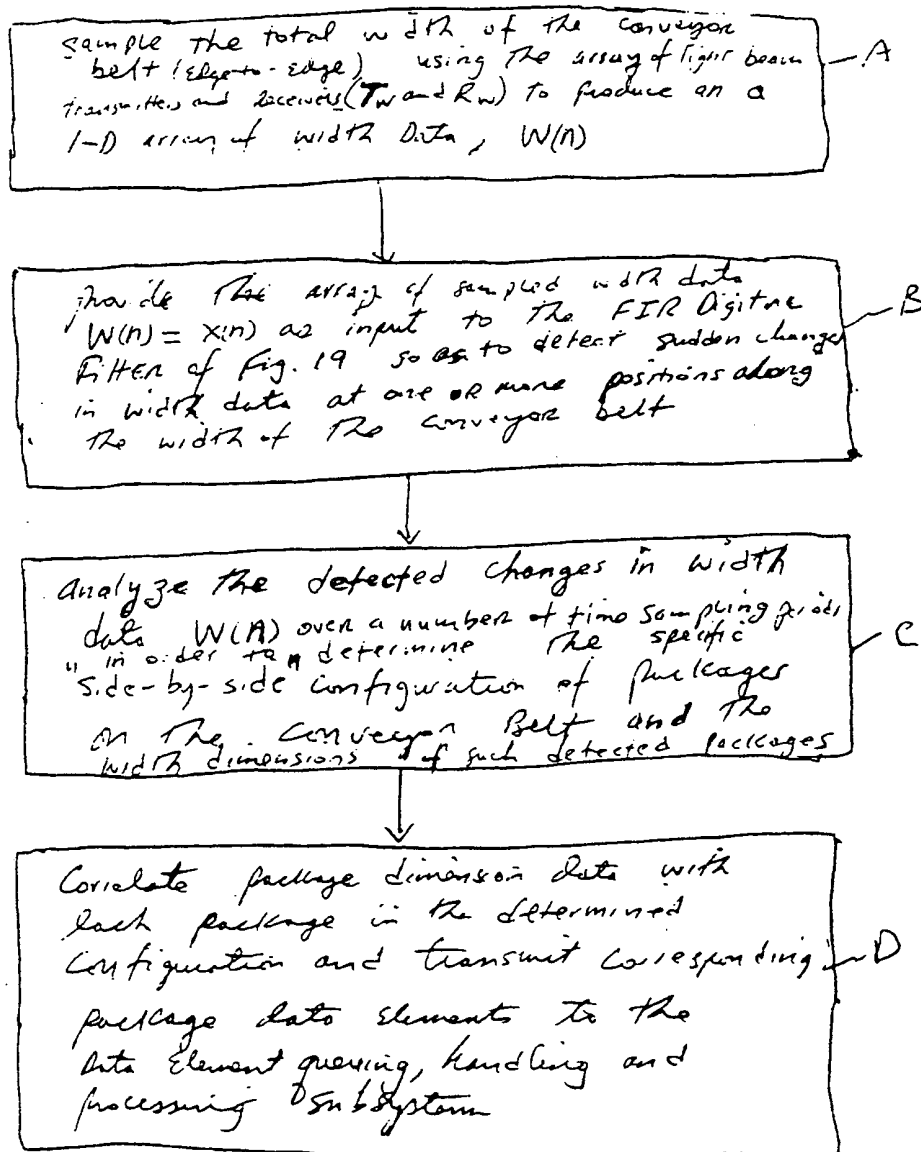 sample the total width of the conveyor
belt (Edge-to-Edge) using the array of light beam
transmitters and Receivers (Tw and Rw) to produce an a
1-D array of width Data, W(n)
A
Provide this array of sampled width data
W(n) = X(n) as input to the FIR Digital
Filter of Fig. 19 so as to detect sudden changes
in width data at one OR more positions along
the width of the conveyor belt
B
analyze the detected changes in width
data W(n) over a number of time sampling periods
"in order to" determine the specific
"side-by-side" configuration of packages
on the Conveyor Belt and the
width dimensions of such detected packages
C
Correlate package dimension data with
each package in the determined
configuration and transmit corresponding
package data elements to the
Data Element queuing, handling and
processing subsystem
D